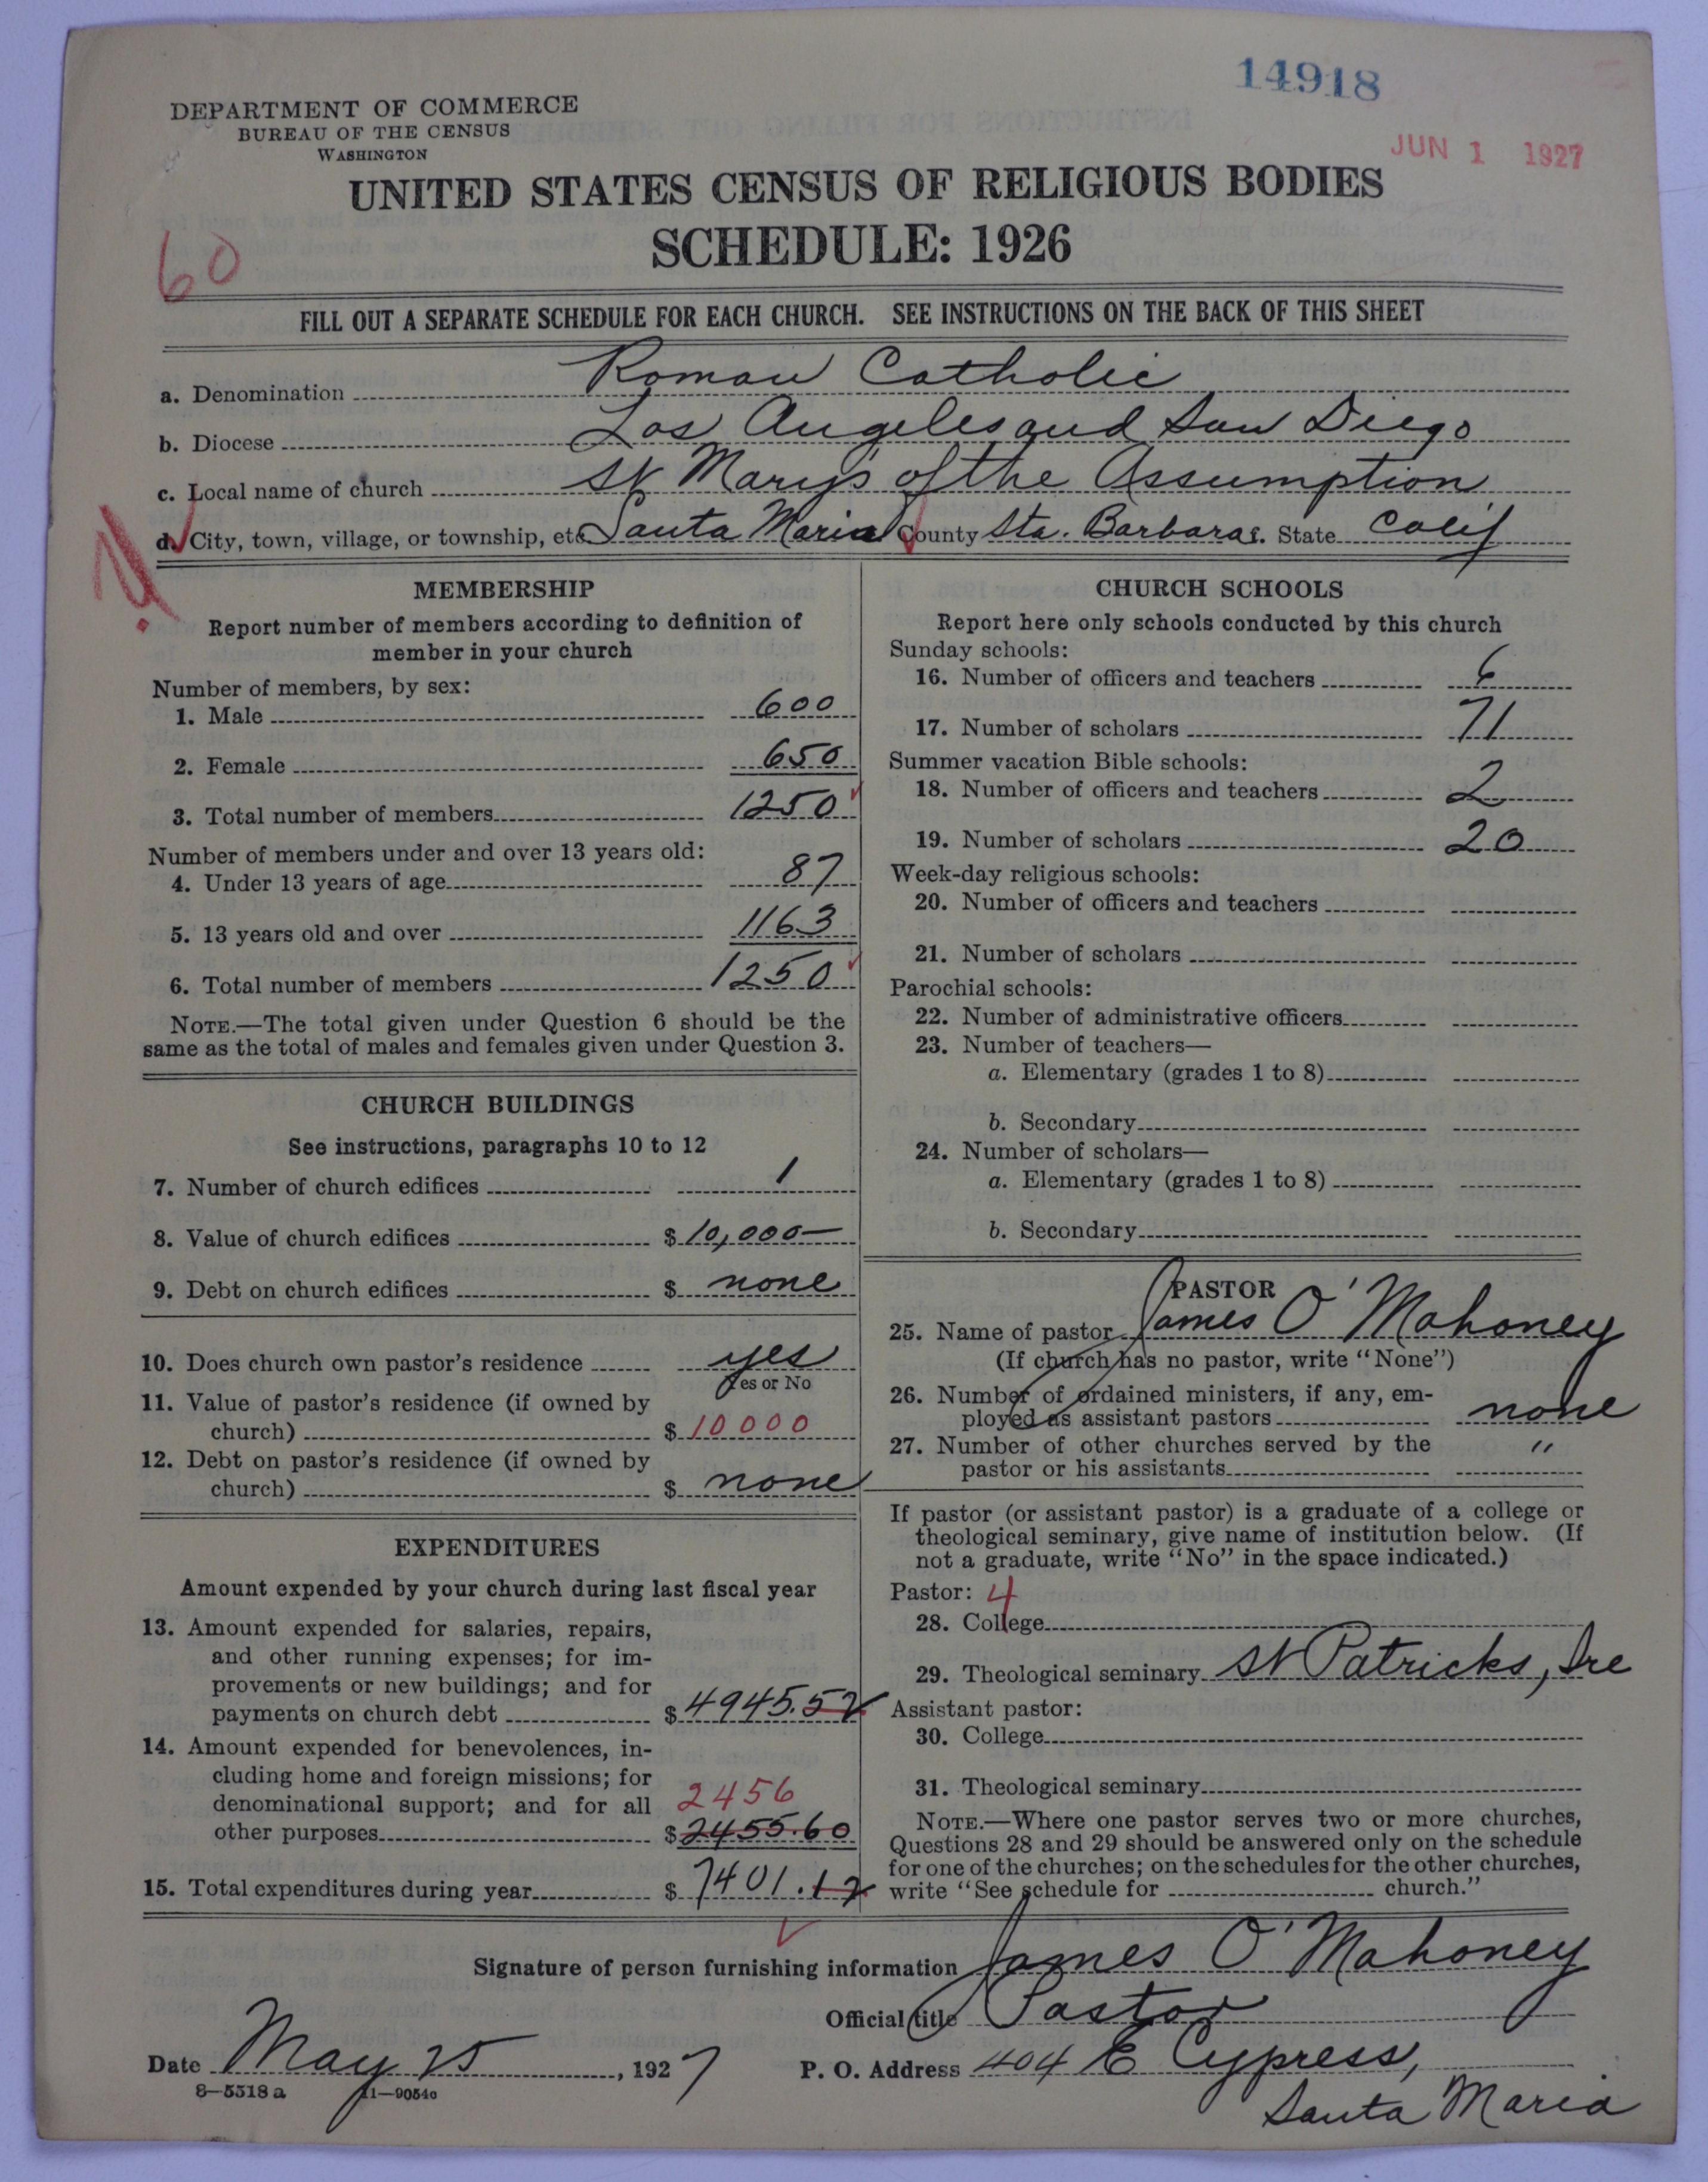 14918
DEPARTMENT OF COMMERCE
BUREAU OF THE CENSUS
WASHINGTON
JUN 1 1927
UNITED STATES CENSUS OF RELIGIOUS BODIES
SCHEDULE: 1926
60
FILL OUT A SEPARATE SCHEDULE FOR EACH CHURCH. SEE INSTRUCTIONS ON THE BACK OF THIS SHEET
a. Denomination Roman Catholic
b. Diocese Los Angeles and San Diego
c. Local name of church St Mary's of the Assumption
d. City, town, village, or township, etc. Santa Maria County Sta. Barbara State Calif
MEMBERSHIP
Report number of members according to definition of
member in your church
Number of members, by sex:
1. Male 600
2. Female 650
3. Total number of members 1250
Number of members under and over 13 years old:
4. Under 13 years of age 87
5. 13 years old and over 1163
6. Total number of members 1250
NOTE.—The total given under Question 6 should be the
same as the total of males and females given under Question 3.
CHURCH BUILDINGS
See instructions, paragraphs 10 to 12
7. Number of church edifices 1
8. Value of church edifices $ 10,000—
9. Debt on church edifices $ none
10. Does church own pastor's residence yes
Yes or No
11. Value of pastor's residence (if owned by
church) $ 10000
12. Debt on pastor's residence (if owned by
church) $ none
EXPENDITURES
Amount expended by your church during last fiscal year
13. Amount expended for salaries, repairs,
and other running expenses; for im-
provements or new buildings; and for
payments on church debt $ 4945.52
14. Amount expended for benevolences, in-
cluding home and foreign missions; for
denominational support; and for all 2456
other purposes $ 2455.60
15. Total expenditures during year $ 7401.12
CHURCH SCHOOLS
Report here only schools conducted by this church
Sunday schools:
16. Number of officers and teachers 6
17. Number of scholars 71
Summer vacation Bible schools:
18. Number of officers and teachers 2
19. Number of scholars 20
Week-day religious schools:
20. Number of officers and teachers
21. Number of scholars
Parochial schools:
22. Number of administrative officers
23. Number of teachers—
a. Elementary (grades 1 to 8)
b. Secondary
24. Number of scholars—
a. Elementary (grades 1 to 8)
b. Secondary
PASTOR
25. Name of pastor James O'Mahoney
(If church has no pastor, write "None")
26. Number of ordained ministers, if any, em-
ployed as assistant pastors none
27. Number of other churches served by the "
pastor or his assistants
If pastor (or assistant pastor) is a graduate of a college or
theological seminary, give name of institution below. (If
not a graduate, write "No" in the space indicated.)
Pastor: 4
28. College
29. Theological seminary St Patricks, Ire
Assistant pastor:
30. College
31. Theological seminary
NOTE.—Where one pastor serves two or more churches,
Questions 28 and 29 should be answered only on the schedule
for one of the churches; on the schedules for the other churches,
write "See schedule for church."
Signature of person furnishing information James O'Mahoney
Official title Pastor
Date May 25, 1927 P. O. Address 404 E Cypress,
8—5518a 11—9054c
Santa Maria